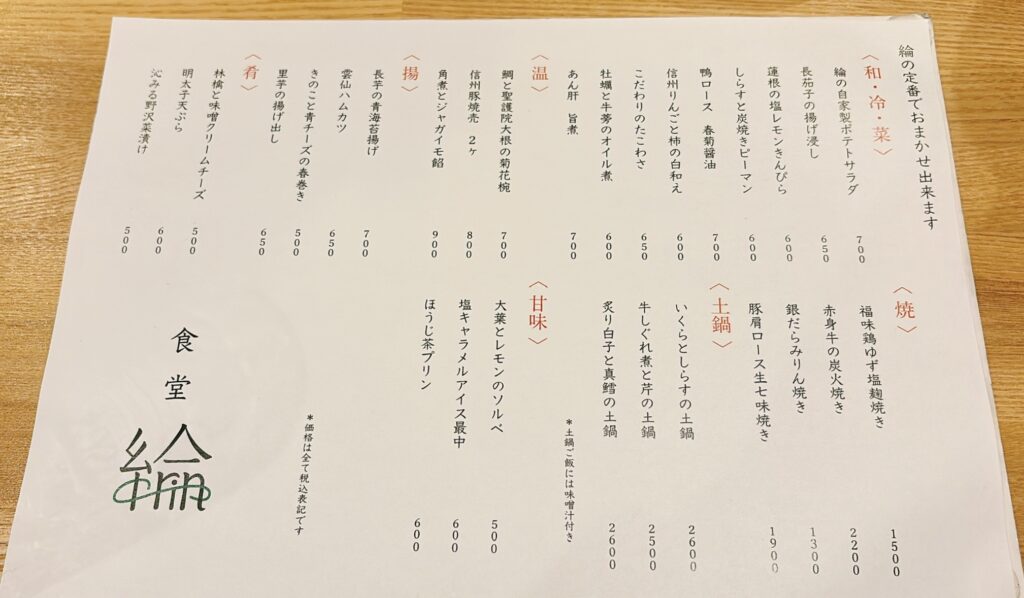 綸の定番でおまかせ出来ます
〈和・冷・菜〉
綸の自家製ポテトサラダ 700
長茄子の揚げ浸し 650
蓮根の塩レモンきんぴら 600
しらすと炭焼きピーマン 600
鴨ロース 春菊醤油 700
信州りんごと柿の白和え 600
こだわりのたこわさ 650
牡蠣と牛蒡のオイル煮 600
あん肝 旨煮 700
〈温〉
鯛と聖護院大根の菊花椀 700
信州豚焼売 2ヶ 800
角煮とジャガイモ餡 900
〈揚〉
長芋の青海苔揚げ 700
雲仙ハムカツ 650
きのこと青チーズの春巻き 500
里芋の揚げ出し 650
〈肴〉
林檎と味噌クリームチーズ 500
明太子天ぷら 600
沁みる野沢菜漬け 500
〈焼〉
福味鶏ゆず塩麹焼き 1500
赤身牛の炭火焼き 2200
銀だらみりん焼き 1300
豚肩ロース生七味焼き 1900
〈土鍋〉
いくらとしらすの土鍋 2600
牛しぐれ煮と芹の土鍋 2500
炙り白子と真鱈の土鍋 2600
*土鍋ご飯には味噌汁付き
〈甘味〉
大葉とレモンのソルベ 500
塩キャラメルアイス最中 600
ほうじ茶プリン 600
*価格は全て税込表記です
食堂
綸